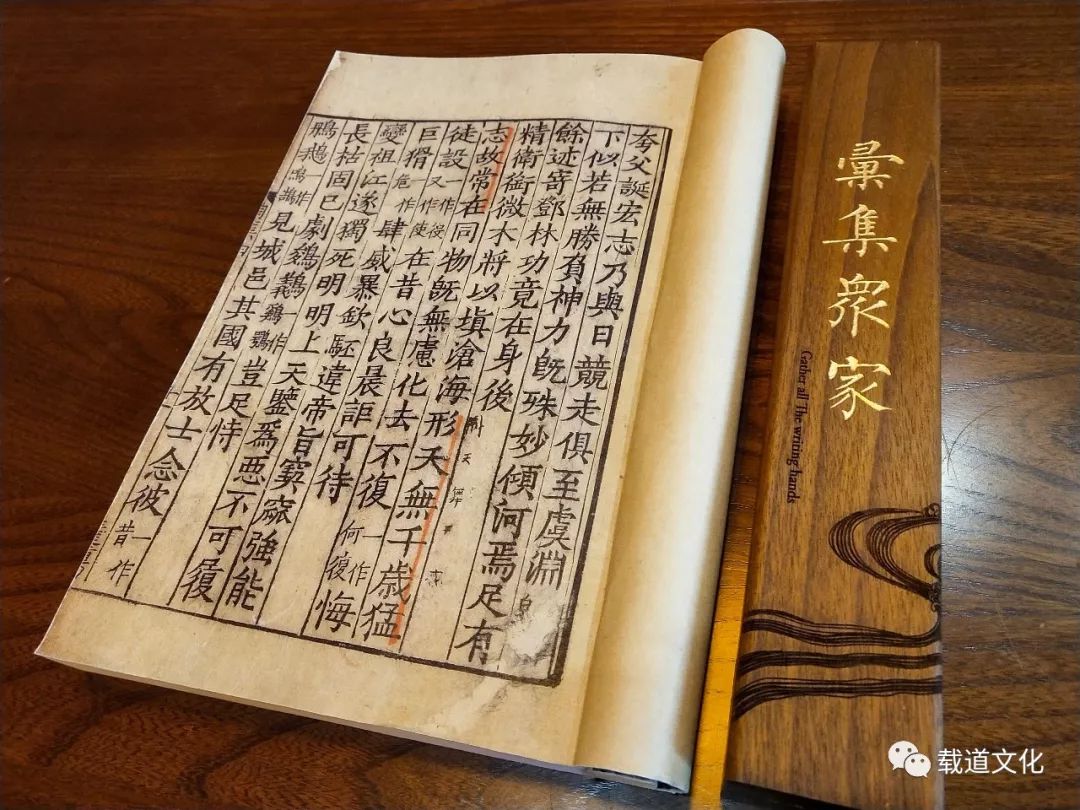 夸父誕宏志乃與日競走俱至虞淵
下似若無勝負神力旣殊妙傾河焉足有
餘迹寄鄧林功竟在身後
精衛銜微木將以塡滄海形天無千歲猛
志故常在同物旣無慮化去不復一作何復悔
徒設在昔心良晨詎可待
巨猾肆威暴欽駓違帝旨窫窳強能
變祖江遂獨死明明上天鑒爲惡不可履
長枯固已劇一作豈足恃
鵝一作見城邑其國有放士念彼一作昔
彙集衆家
Gather all The writing hands
载道文化